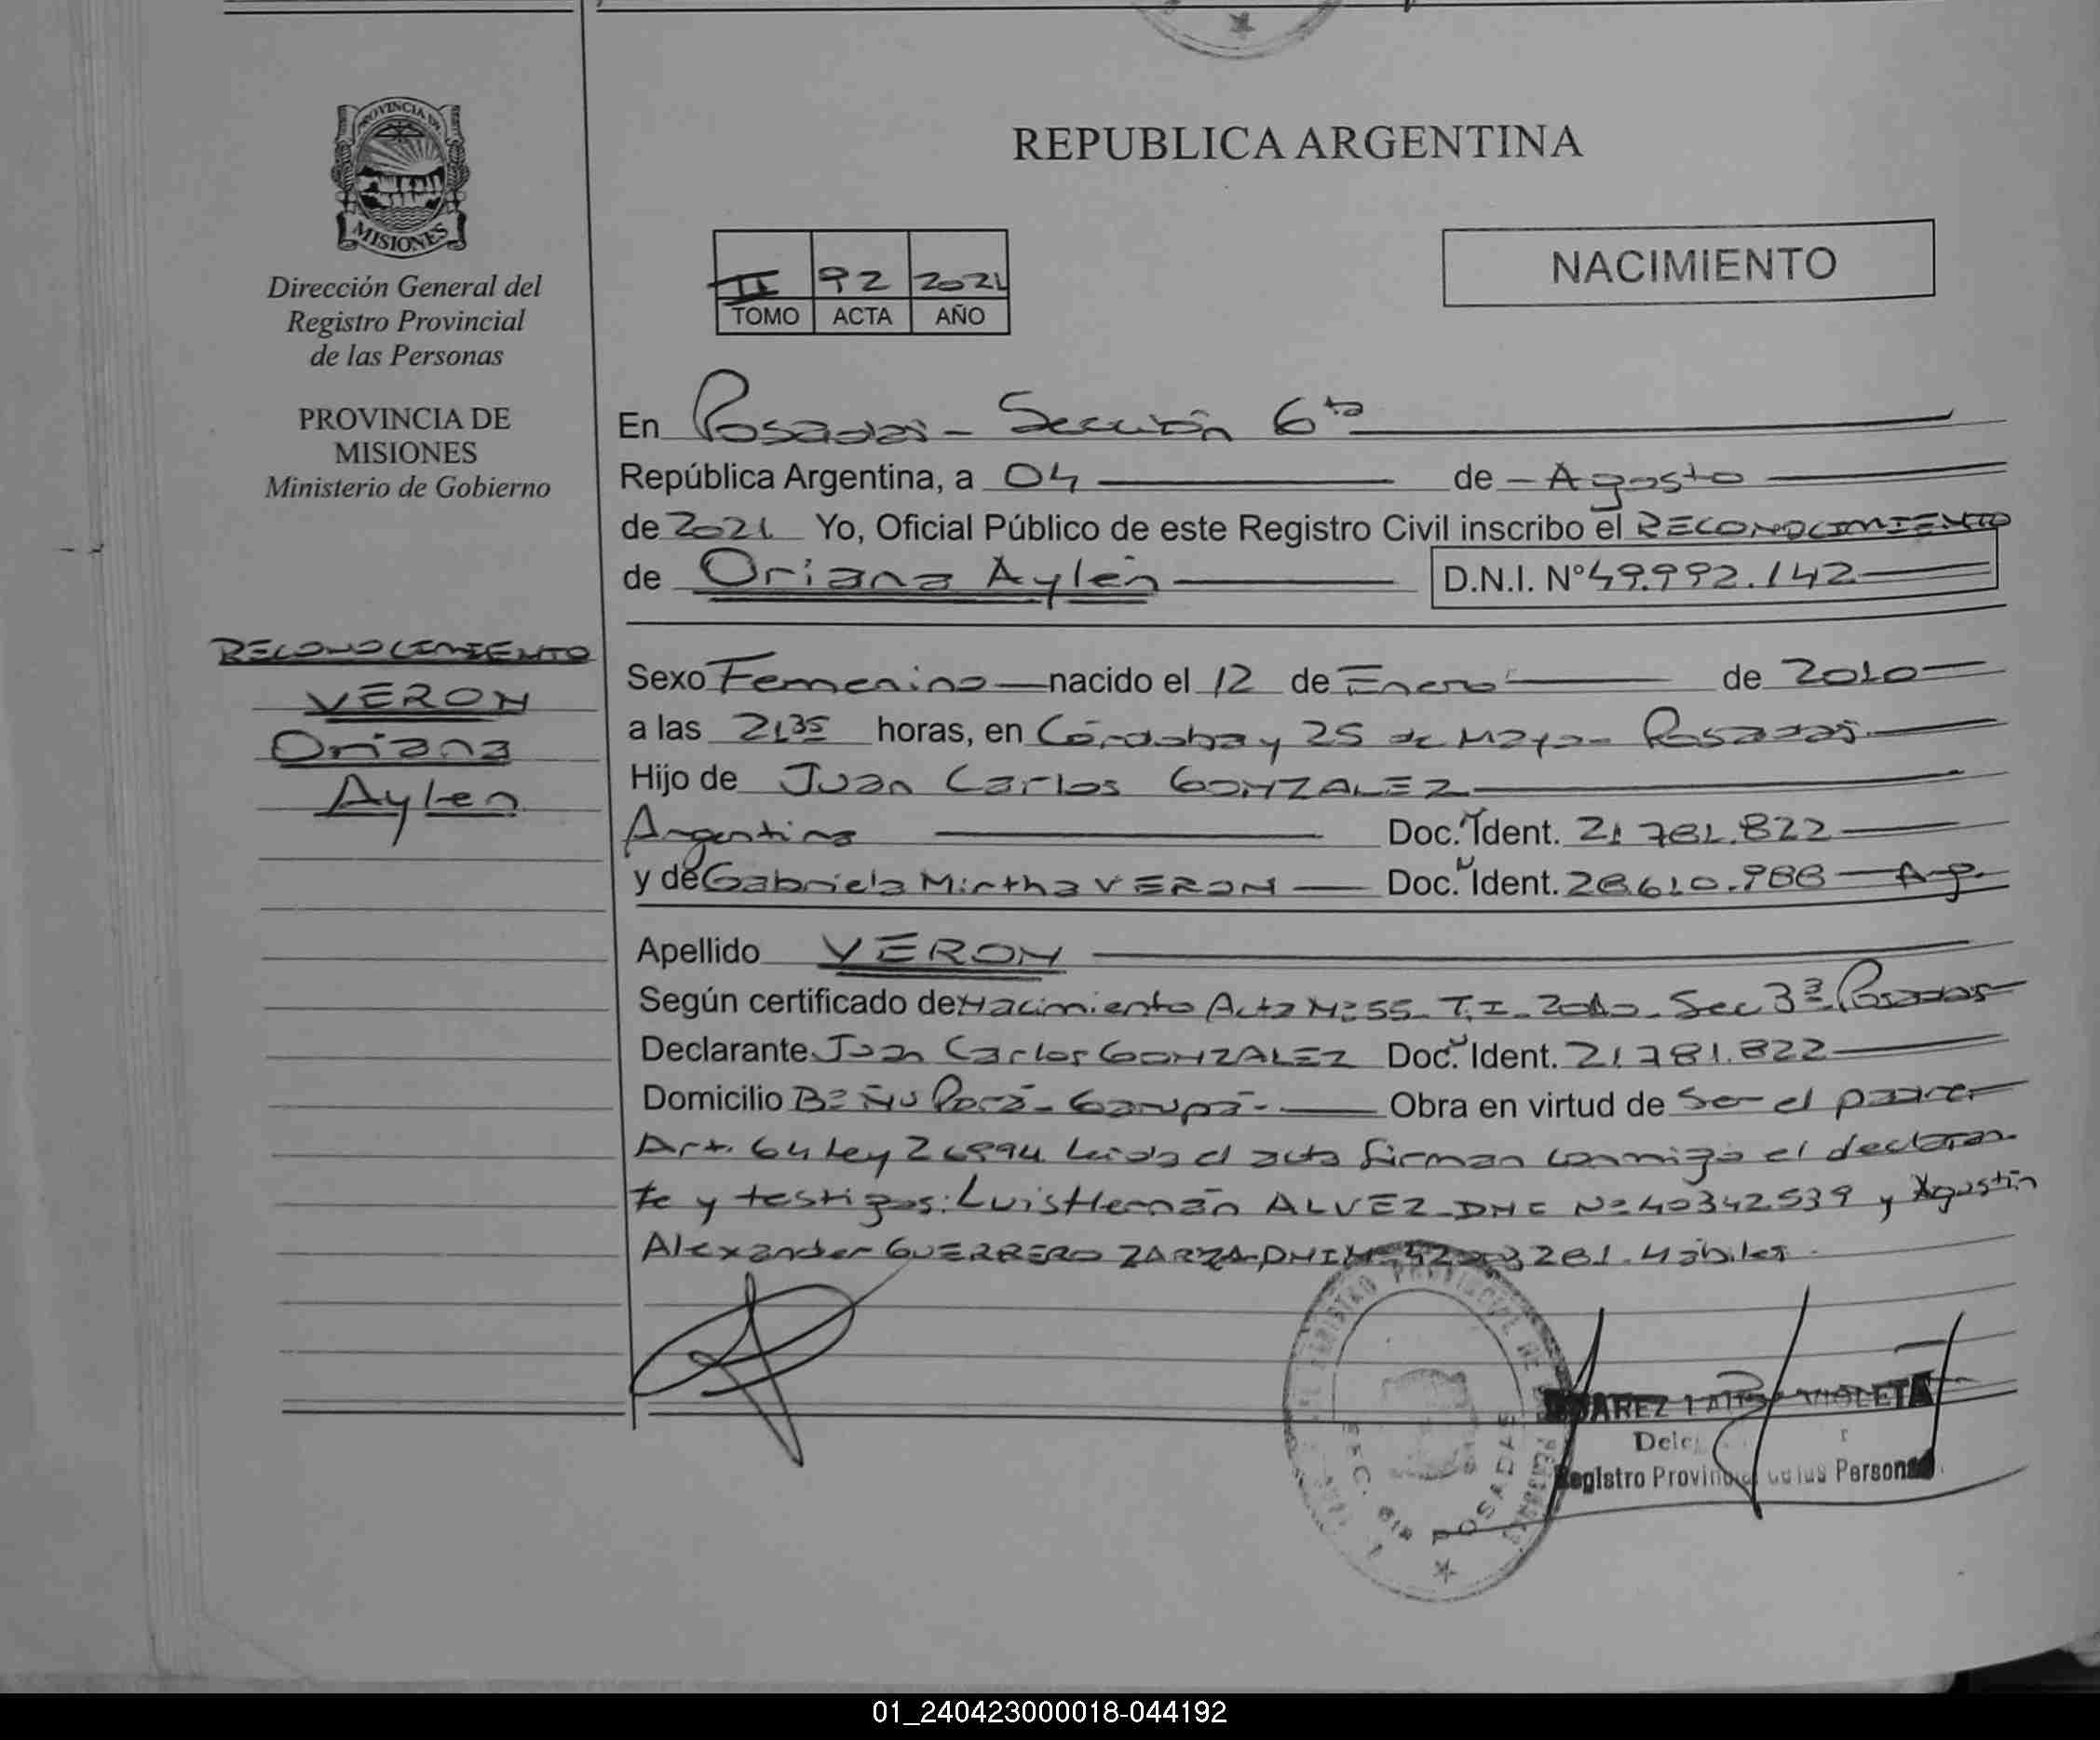 PROVINCIA DE
MISIONES
Dirección General del
Registro Provincial
de las Personas
PROVINCIA DE
MISIONES
Ministerio de Gobierno
RECONOCIMIENTO
VERON
Oriana
Aylen
REPUBLICA ARGENTINA
II 92 2021
TOMO ACTA AÑO
NACIMIENTO
En Posadas - Sección 6ta
República Argentina, a 04 de - Agosto
de 2021 Yo, Oficial Público de este Registro Civil inscribo el RECONOCIMIENTO
de Oriana Aylen D.N.I. Nº 49.992.142
Sexo Femenino nacido el 12 de Enero de 2010
a las 21,35 horas, en Córdoba y 25 de Mayo - Posadas
Hijo de Juan Carlos GONZALEZ
Argentino Doc. Ident. 21.781.822
y de Gabriela Mirtha VERON Doc. Ident. 28.610.988 Ag.
Apellido VERON
Según certificado de Nacimiento Acta Nº 55 - T. I - 2010 - Sec 3ª Posadas
Declarante Juan Carlos GONZALEZ Doc. Ident. 21.781.822
Domicilio Bº Ñu Porá - Garupá - Obra en virtud de Ser el padre
Art. 64 Ley 26994 Leida el acta firman conmigo el declaran
te y testigos: Luis Hernán ALVEZ - DNI Nº 40342539 y Agustín
Alexander GUERRERO ZARZA - DNI Nº 3281. Hábiles
REGISTRO PROVINCIAL DE LAS PERSONAS
SEC. 6ta POSADAS
VIOLETA
Registro Provincial de las Personas
01_240423000018-044192